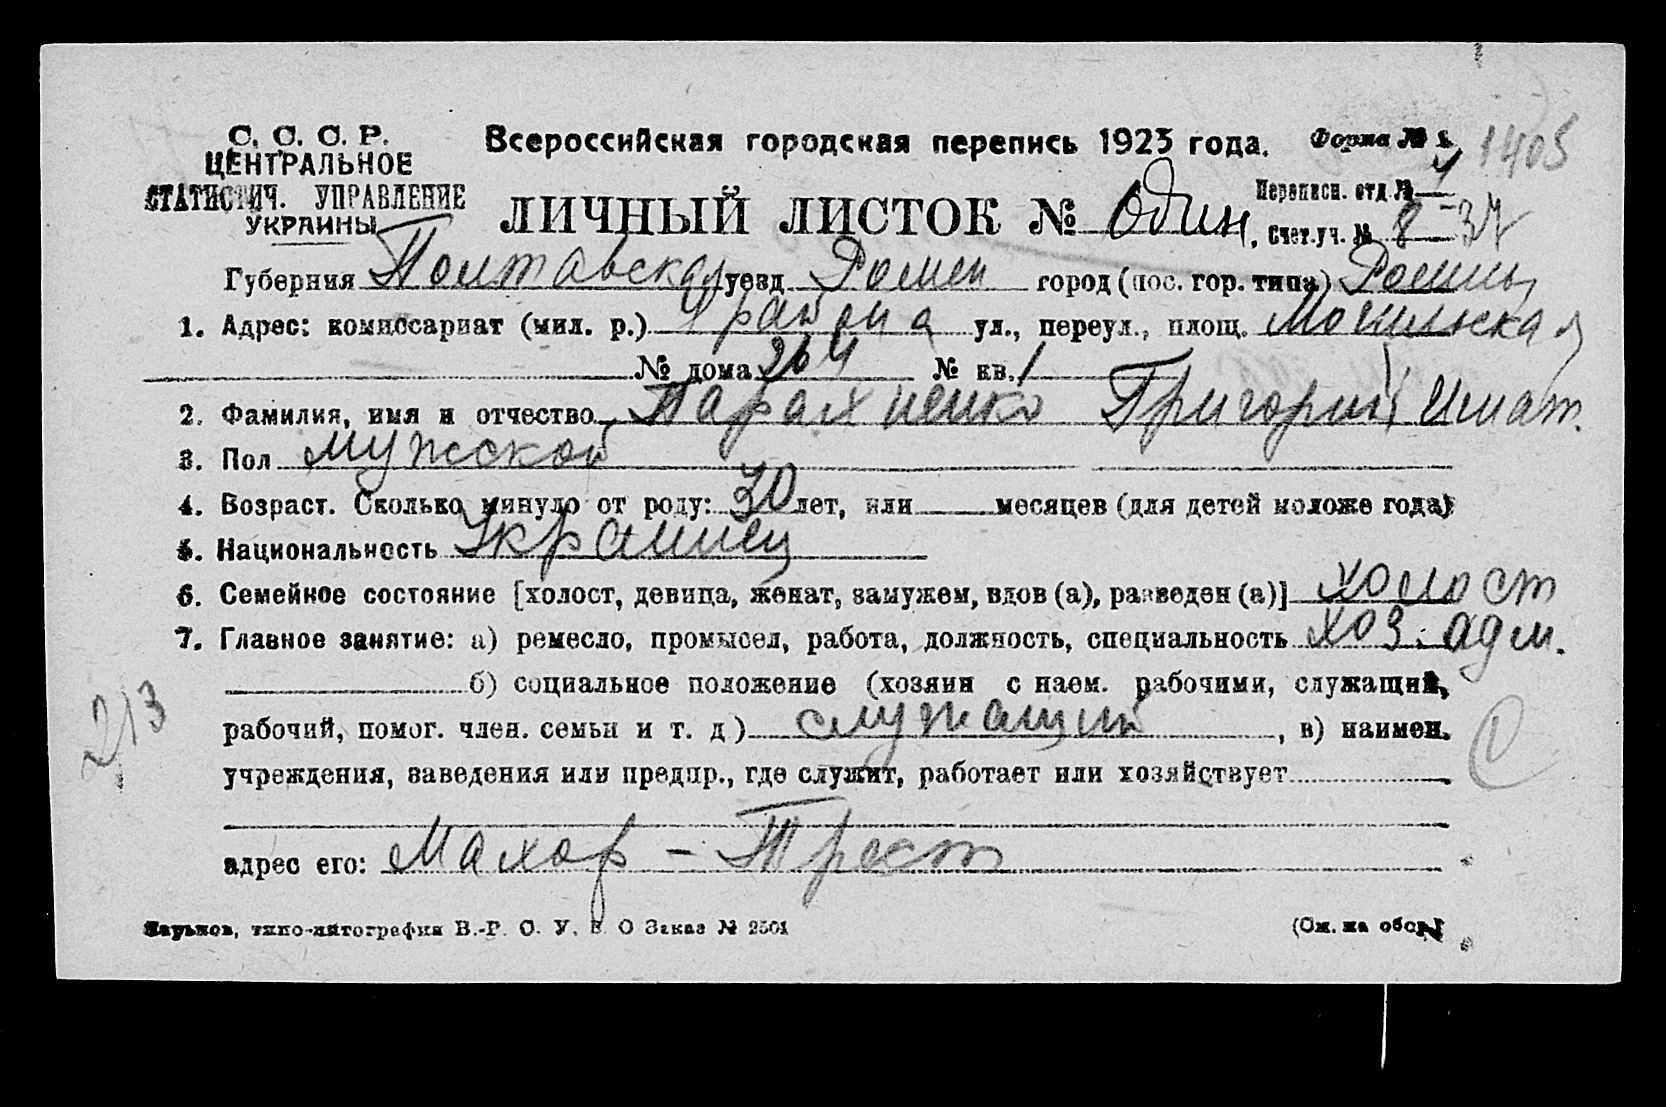 С. С. С. Р.
ЦЕНТРАЛЬНОЕ
СТАТИСТИЧ. УПРАВЛЕНИЕ
УКРАИНЫ
Всероссийская городская перепись 1923 года.
Форма № 1.
1405
ЛИЧНЫЙ ЛИСТОК № Один
Переписн. отд №
, Счет.уч. № 8 - 37
Губерния Полтавская уезд Ромен город (пос. гор. типа) Ромны
1. Адрес: комиссариат (мил. р.) района ул., переул., площ.
№ дома 264 № кв. 1
2. Фамилия, имя и отчество Григорий Игнат.
3. Пол мужской
4. Возраст. Сколько минуло от роду: 30 лет, или месяцев (для детей моложе года)
5. Национальность Украинец
6. Семейное состояние [холост, девица, женат, замужем, вдов (а), разведен (а)] холост
7. Главное занятие: а) ремесло, промысел, работа, должность, специальность хоз. адм.
б) социальное положение (хозяин с наем. рабочими, служащий,
рабочий, помог. член. семьи и т. д) служащий, в) наимен.
учреждения, заведения или предпр., где служит, работает или хозяйствует
адрес его: Махор - Трест
213
Харьков, типо-литография В.-Р. О. У. В. О Заказ № 2501
(См. на обор.)